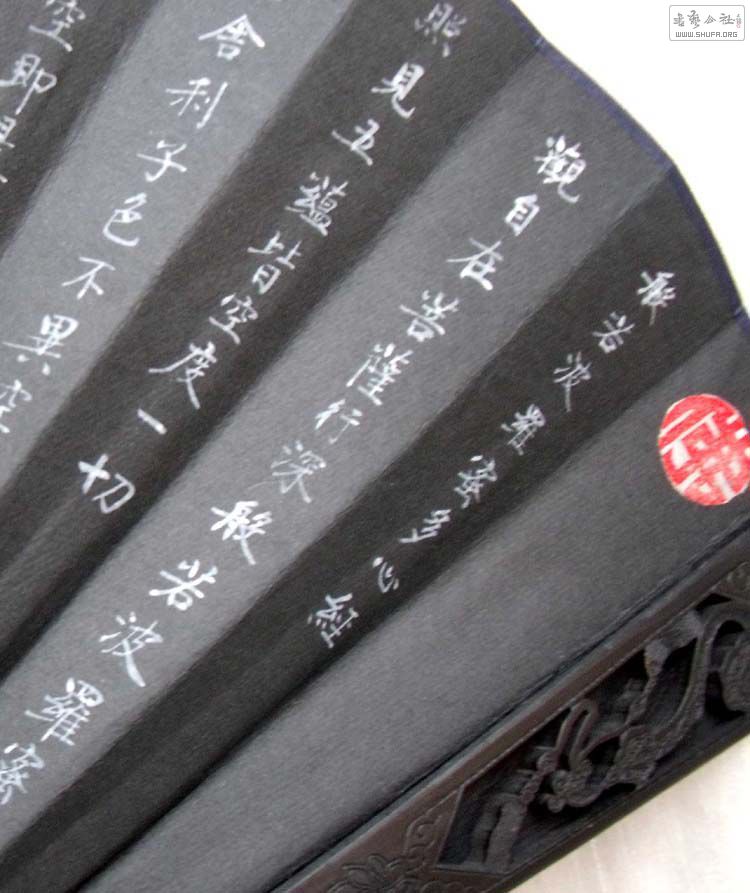 般若波羅蜜多心經
觀自在菩薩行深般若波羅蜜
照見五蘊皆空度一切
舍利子色不異空
空即是
WWW.SHUFA.ORG